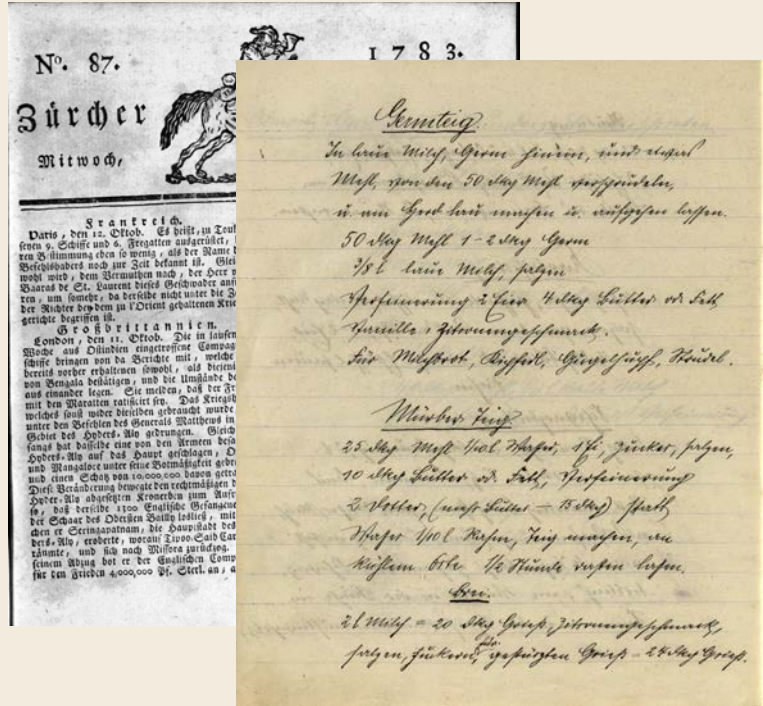 Nº. 87.
1783.
Zürcher
Mittwoch,
Frankreich.
Paris, den 12. Oktob. Es heißt, zu Toul
seyen 9. Schiffe und 6. Fregatten ausgerüstet,
ren Bestimmung eben so wenig, als der Name d
Befehlshabers noch zur Zeit bekannt ist. Glei
wohl wird, dem Vermuthen nach, der Herr v
Baaras de St. Laurent dieses Geschwader anf
ren, um somehr, da derselbe nicht unter die Z
der Richter bey dem zu l'Orient gehaltenen Krie
gerichte begriffen ist.
Großbrittannien.
London, den 11. Oktob. Die in laufen
Woche aus Ostindien eingetroffene Compag
schiffe bringen von da Berichte mit, welche
bereits vorher erhaltenen sowohl, als diejeni
von Bengala bestätigen, und die Umstände be
aus einander legen. Sie melden, daß der Fr
mit den Maratten ratifiziert sey. Das Kriegsh
welches sonst wider dieselben gebraucht wurde
unter den Befehlen des Generals Matthews in
Gebiet des Hyders-Aly gedrungen. Gleich
fangs hat dasselbe eine von den Armeen desa
Hyders-Aly auf das Haupt geschlagen, O
und Mangalore unter seine Botmäßigkeit gebr
und einen Schatz von 10,000,000 davon getra
Diese Veränderung bewegte den rechtmäßigen
Hyder-Aly abgesetzten Kronerben zum Aufr
so, daß derselbe 1300 Englische Gefangene
der Schaar des Obersten Bailly losließ, mit
chen er Seringapatnam, die Hauptstadt des
ders-Aly, eroberte, worauf Tipoo-Said Car
räumte, und sich nach Missora zurückzog.
seinem Abzug bot er der Englischen Comp
für den Frieden 4,000,000 Pf. Sterl. an, a
Germteig.
In laue Milch, Germ hinein, und etwas
Mehl, von den 50 dkg Mehl versprudeln,
u. am Herd lau machen u. aufgehen lassen.
50 dkg Mehl 1-2 dkg Germ
3/8 l laue Milch, salzen
Verfeinerung 2 Eier 4 dkg Butter od. Fett
Vanille, Zitronengeschmack.
Für Milchbrot, Kipferl, Gugelhupf, Strudel.
Mürber Teig
25 dkg Mehl 1/10 l Wasser, 1 Ei, Zucker, salzen,
10 dkg Butter od. Fett, Verfeinerung
2 Dotter, (mehr Butter – 15 dkg) statt
Wasser 1/10 l Rahm, Teig machen, an
kühlem Orte 1/2 Stunde rasten lassen.
Brei.
2 l Milch = 20 dkg Grieß, Zitronengeschmack,
salzen, zuckern, für gestürzten Grieß – 24 dkg Grieß.